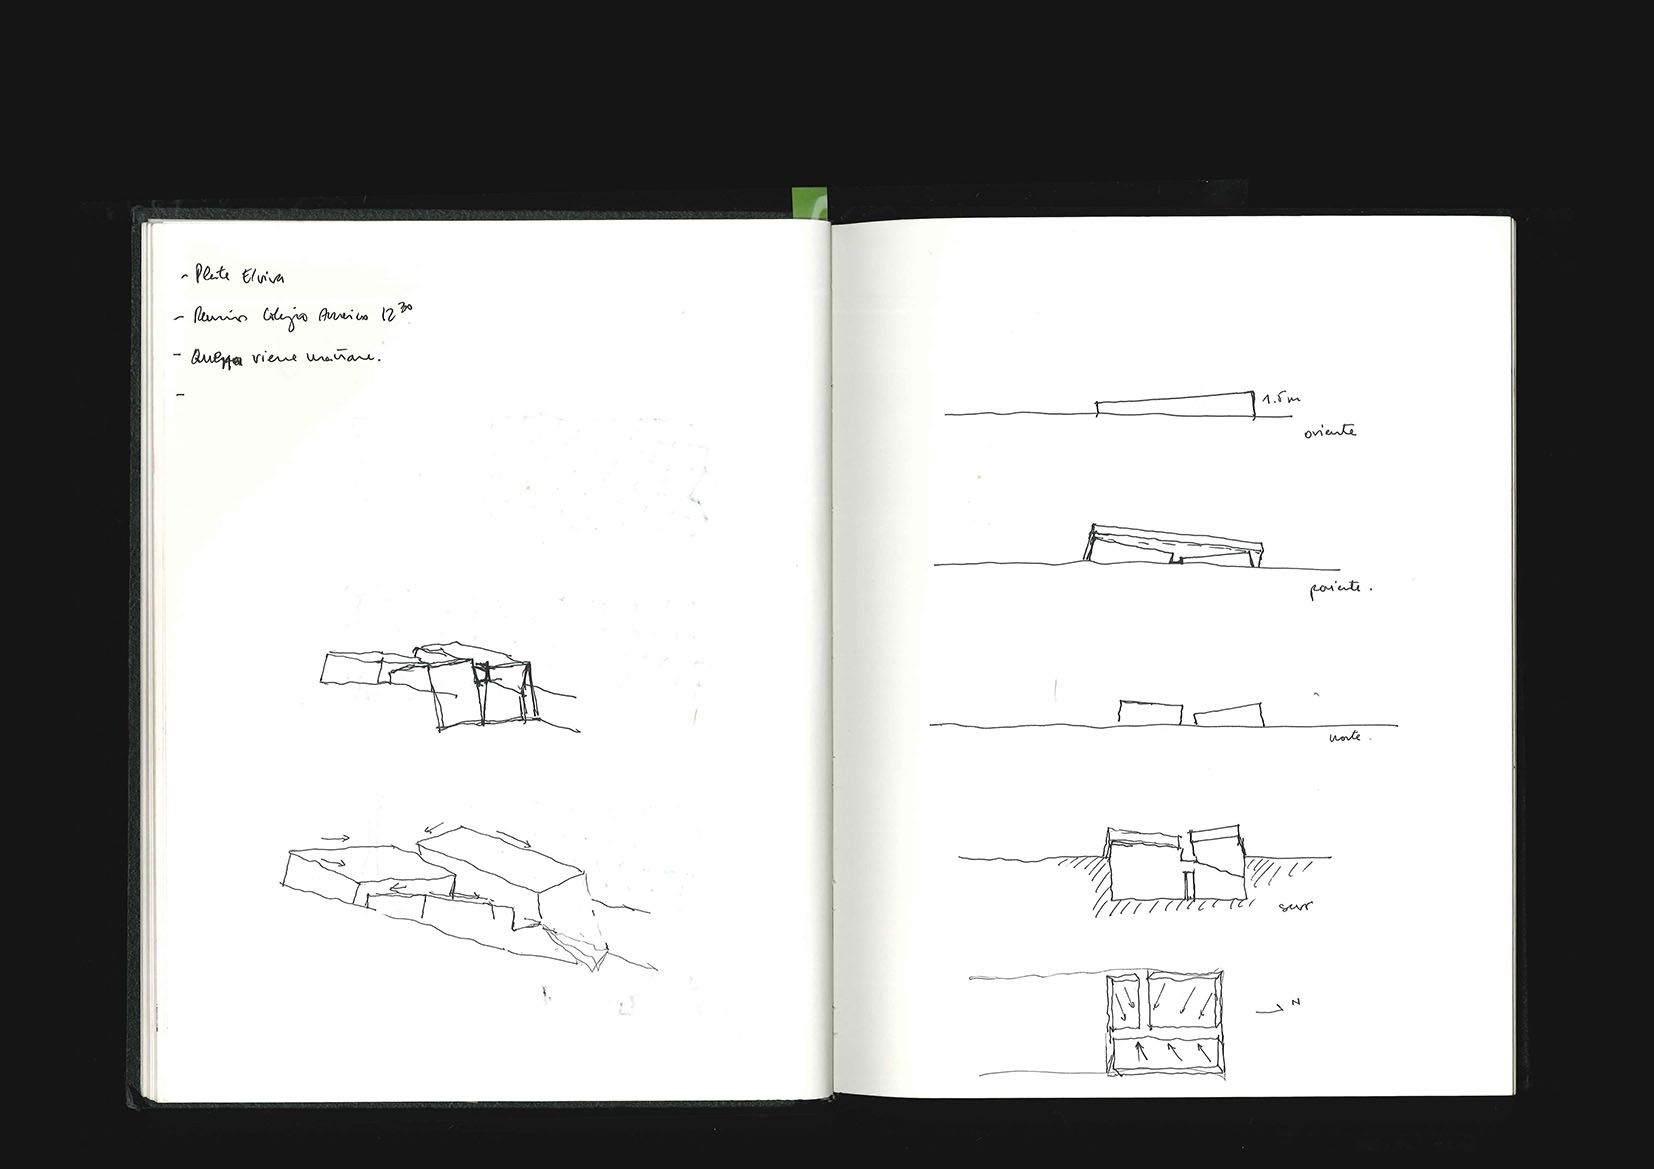 - Plate Elvira
- Reunion Colegio 12³⁰
- viene mañana.
-
1.5m
oriente
poniente.
norte.
sur
N